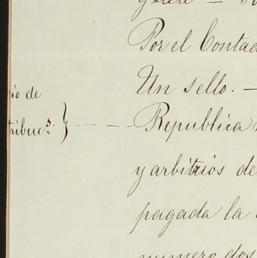 Por el Contad
Un sello. —
io de
tribucs. } — — — Republica
y arbitrios de
pagada la
numero dos